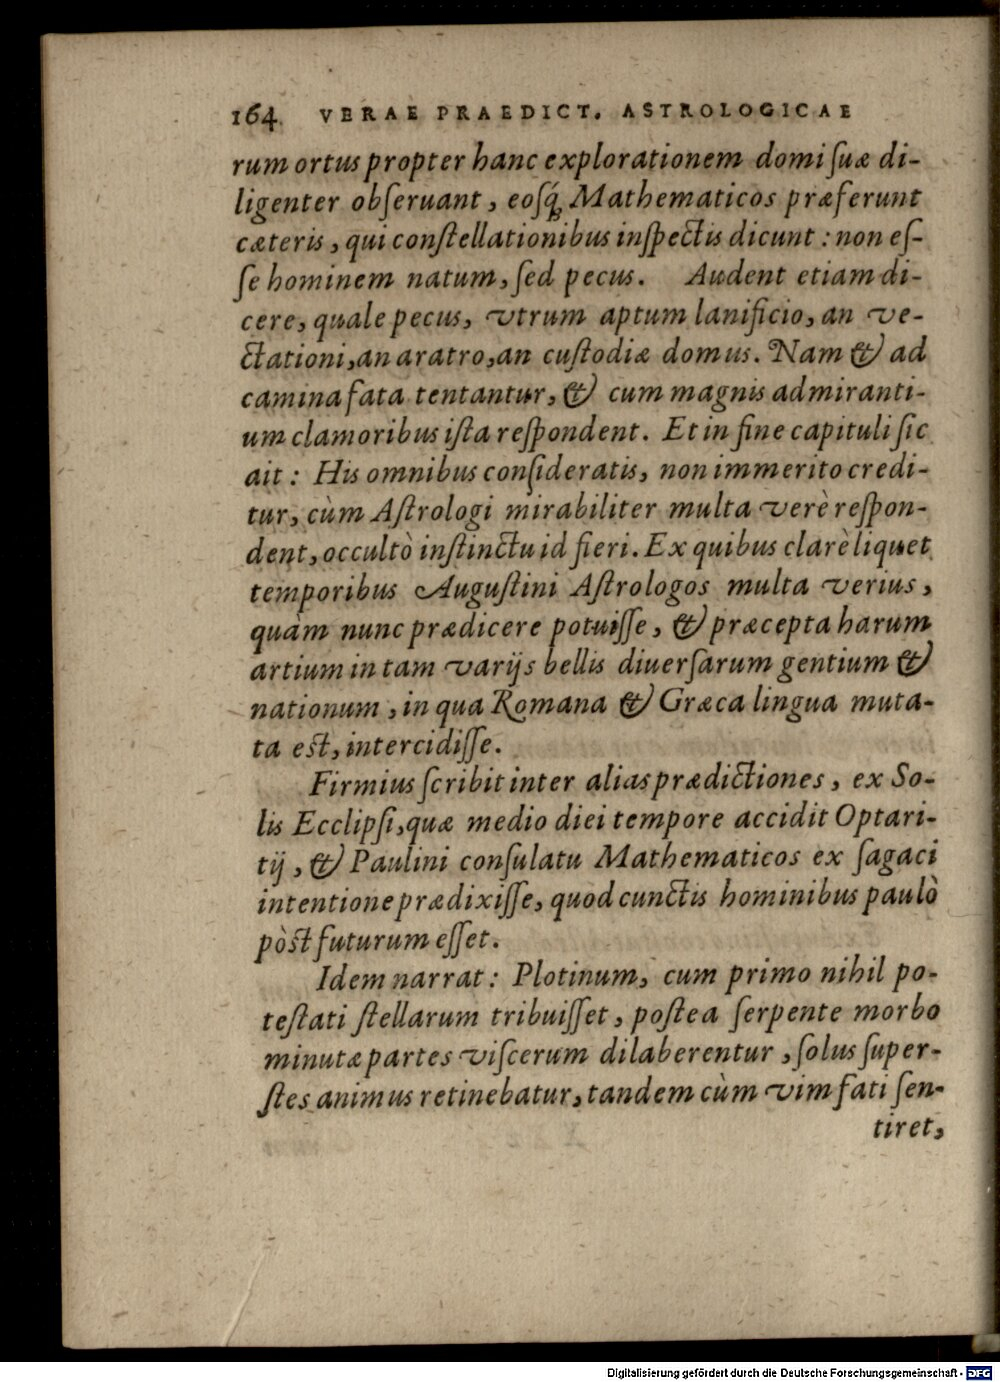 164 VERAE PRAEDICT. ASTROLOGICAE
rum ortus propter hanc explorationem domi ſuæ di-
ligenter obſeruant, eosq́; Mathematicos præferunt
cæteris, qui conſtellationibus inſpectis dicunt: non eſ-
ſe hominem natum, ſed pecus. Audent etiam di-
cere, quale pecus, vtrum aptum lanificio, an ve-
ctationi, an aratro, an cuſtodiæ domus. Nam & ad
camina fata tentantur, & cum magnis admiranti-
um clamoribus iſta reſpondent. Et in fine capituli ſic
ait: His omnibus conſideratis, non immerito credi-
tur, cùm Aſtrologi mirabiliter multa verè reſpon-
dent, occultò inſtinctu id fieri. Ex quibus clarè liquet
temporibus Auguſtini Aſtrologos multa verius,
quàm nunc prædicere potuiſſe, & præcepta harum
artium in tam varijs bellis diuerſarum gentium &
nationum, in qua Romana & Græca lingua muta-
ta eſt, intercidiſſe.
Firmius ſcribit inter alias prædictiones, ex So-
lis Ecclipſi, quæ medio diei tempore accidit Optari-
tij, & Paulini conſulatu Mathematicos ex ſagaci
intentione prædixiſſe, quod cunctis hominibus paulò
pòſt futurum eſſet.
Idem narrat: Plotinum, cum primo nihil po-
teſtati ſtellarum tribuiſſet, poſtea ſerpente morbo
minutæ partes viſcerum dilaberentur, ſolus ſuper-
ſtes animus retinebatur, tandem cùm vim fati ſen-
tiret,
Digitalisierung gefördert durch die Deutsche Forschungsgemeinschaft - DFG